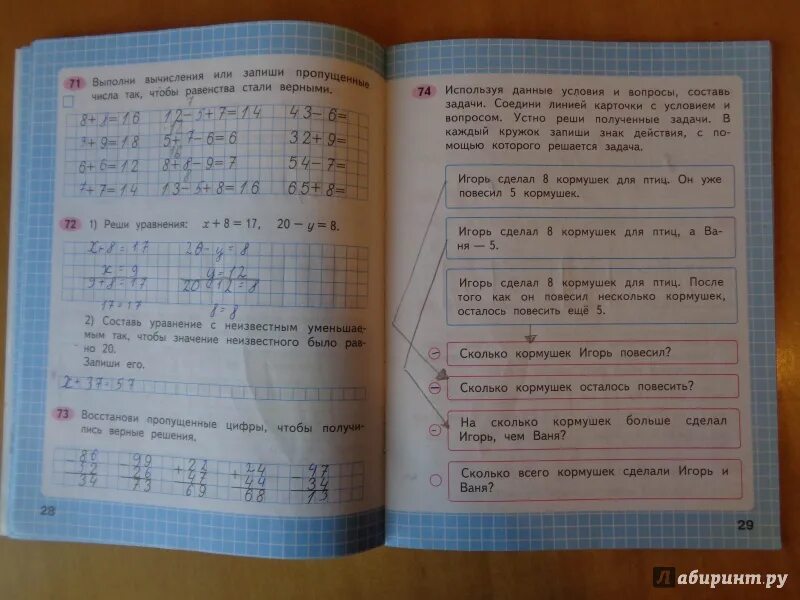 71 Выполни вычисления или запиши пропущенные
числа так, чтобы равенства стали верными.
8+8=16 12-5+7=14 43-6=
9+9=18 5+7-6=6 32+9=
6+6=12 8+8-9=7 54-7=
7+7=14 13-5+8=16 65+8=
72 1) Реши уравнения: x+8=17, 20-y=8.
x+8=17 20-y=8
x=9 y=12
9+8=17 20-12=8
17=17 8=8
2) Составь уравнение с неизвестным уменьшае-
мым так, чтобы значение неизвестного было рав-
но 20.
Запиши его.
x+37=57
73 Восстанови пропущенные цифры, чтобы получи-
лись верные решения.
86 99 22 24 47
52 26 47 44 34
34 73 69 68 13
28
74 Используя данные условия и вопросы, составь
задачи. Соедини линией карточки с условием и
вопросом. Устно реши полученные задачи. В
каждый кружок запиши знак действия, с по-
мощью которого решается задача.
Игорь сделал 8 кормушек для птиц. Он уже
повесил 5 кормушек.
Игорь сделал 8 кормушек для птиц, а Ва-
ня — 5.
Игорь сделал 8 кормушек для птиц. После
того как он повесил несколько кормушек,
осталось повесить ещё 5.
Сколько кормушек Игорь повесил?
Сколько кормушек осталось повесить?
На сколько кормушек больше сделал
Игорь, чем Ваня?
Сколько всего кормушек сделали Игорь и
Ваня?
29
Лабиринт.ру